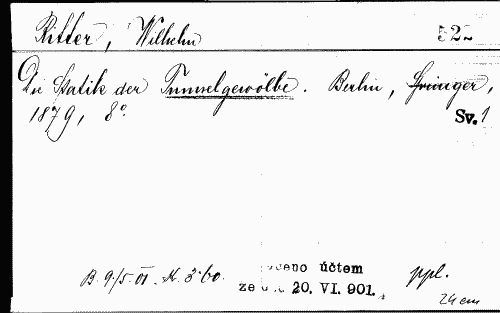 Ritter, Wilhelm 522
Die Statik der Tunnelgewölbe. Berlin, Springer,
1879, 8°. Sv. 1
B. 9/5. 01. K. 3·60. účtem ppl.
ze 20. VI. 901.
24 cm